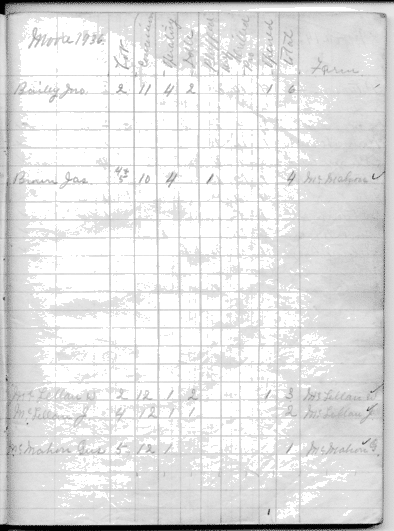 Moore 1936. Lot Concession Yearling Bulls Farm
Bailey Jno. 2 11 4 2 1 6
Brown Jas 4+5 10 4 1 4 McMahon ✓
McLellan W 2 12 1 2 1 3 McLellan W
McLellan J 4 12 1 1 2 McLellan J
McMahon Gus 5 12 1 1 McMahon G